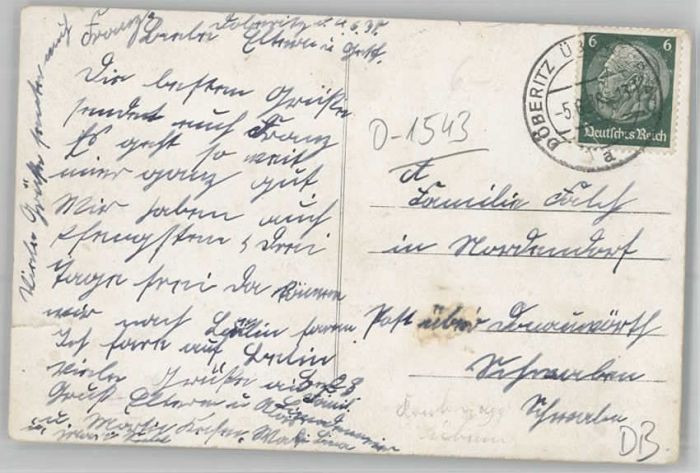 Döberitz
Liebe Eltern u. Gesch.
Die besten Grüße
sendet euch Franz
Es geht so weit
mier ganz gut
Wir haben auch
Pfengsten 3 Drei
Tage frei da können
wir nach Berlin faren
Ich fare auf Berlin
Viele Grüße aus
Gruß Eltern u.
Viele Grüße sendet euch Franz
DÖBERITZ ÜB
a
6 6
Deutsches Reich
D-1543
A
Familie Falch
in Nordendorf
Post über Donauwörth
Schwaben
Schwaben
DB